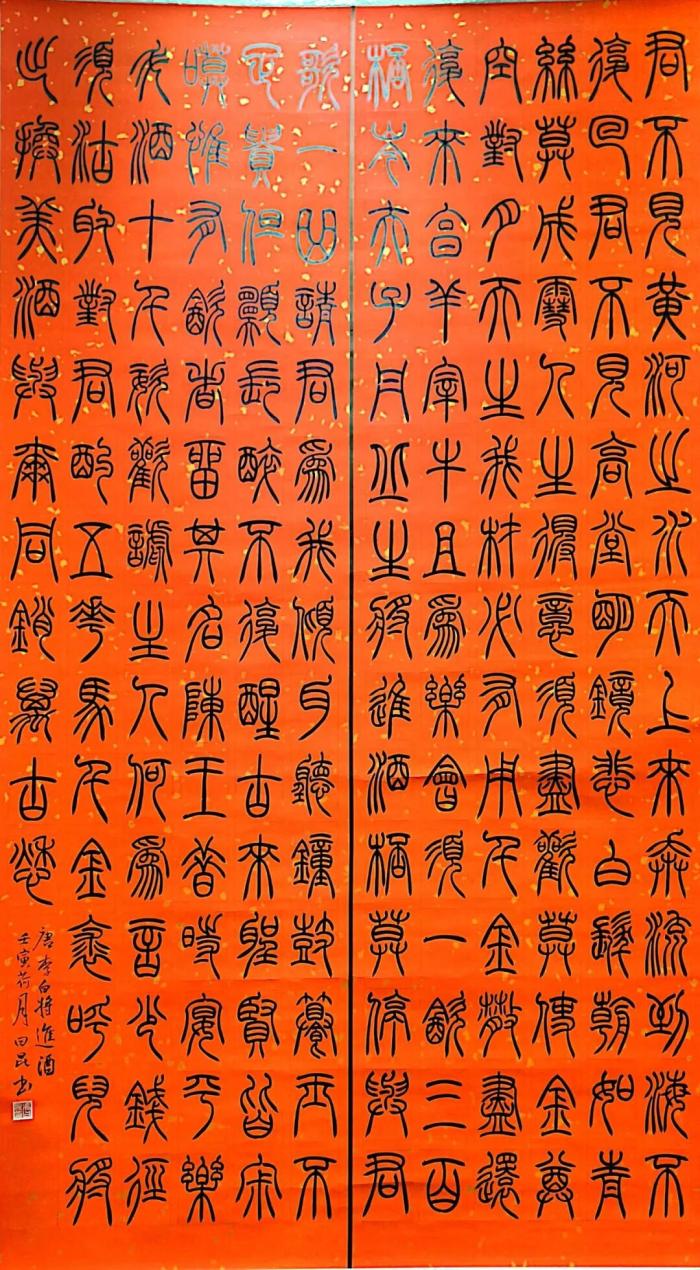 君不見黃河之水天上來奔流到海不
復回君不見高堂明鏡悲白髮朝如青
絲莫成雪人生得意須盡歡莫使金尊
空對月天生我材必有用千金散盡還
復來亯羊宰牛且為樂會須一飲三百
桮岑夫子丹丘生將進酒桮莫停與君
歌一曲請君為我傾耳聽鐘鼓饌玉不
足貴但願長醉不復醒古來聖賢皆寂
嗼惟有飲者留其名陳王昔時宴平樂
斗酒十千恣歡謔主人何為言少錢徑
須沽取對君酌五花馬千金裘呼兒將
出換美酒與爾同銷萬古愁
唐李白将進酒
壬寅荷月田昆书